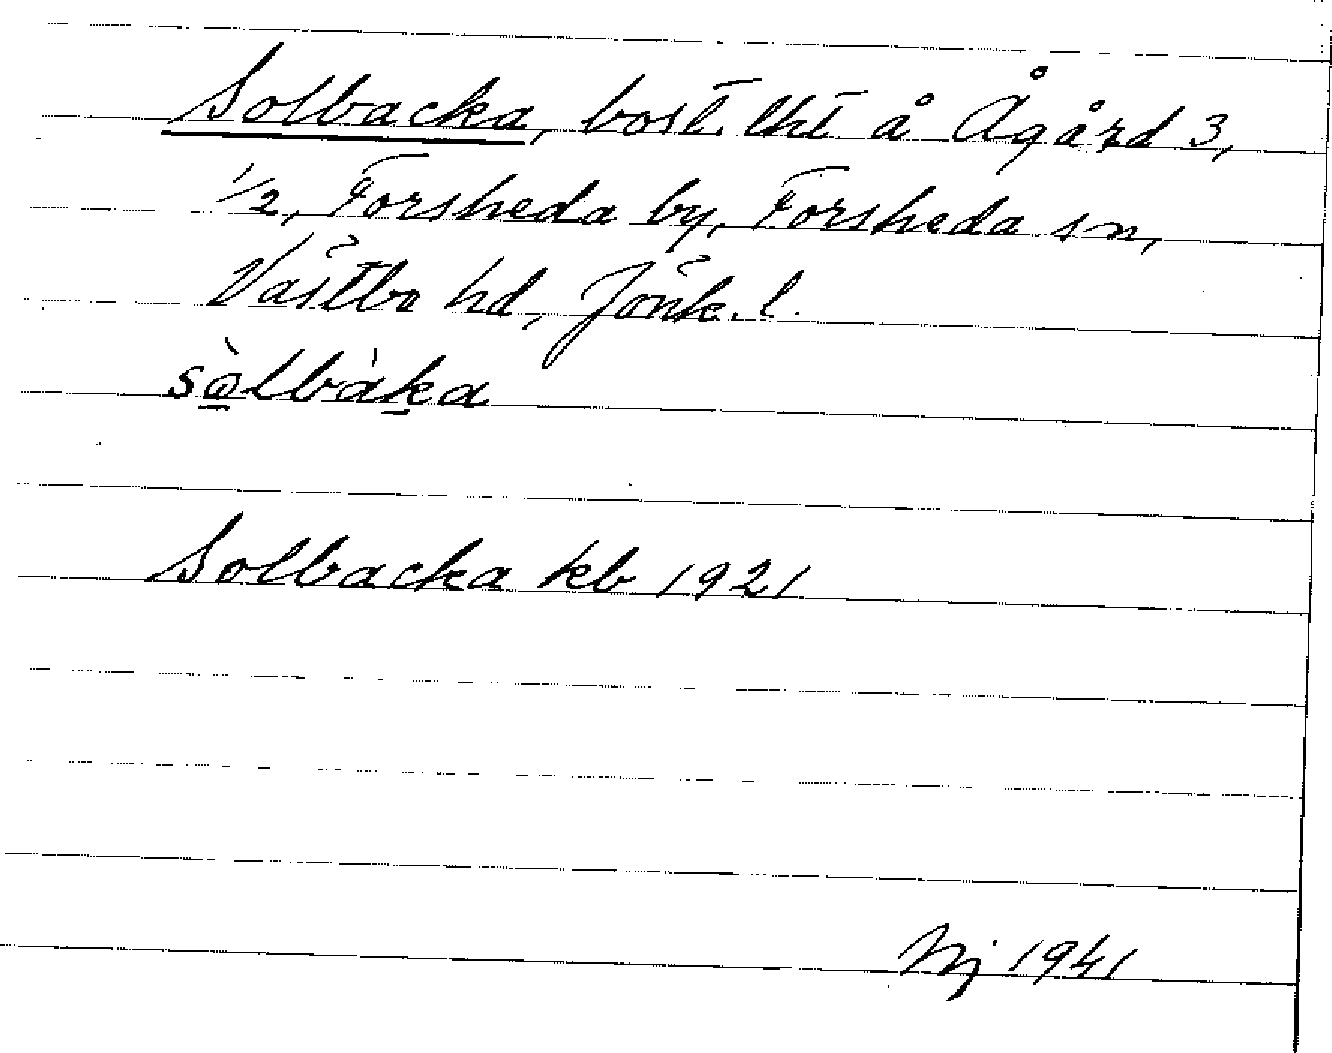 Solbacka, bost. lht å Ågård 3,
1/2, Forsheda by, Forsheda sn,
Västbo hd, Jönk. l.
sòlbàka
Solbacka kb 1921
Nj 1941